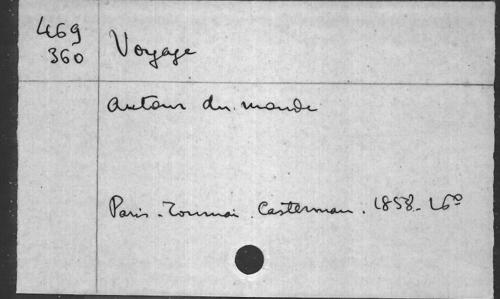 469
360
Voyage
autour du monde
Paris - Tournai. Casterman. 1858 - 16°